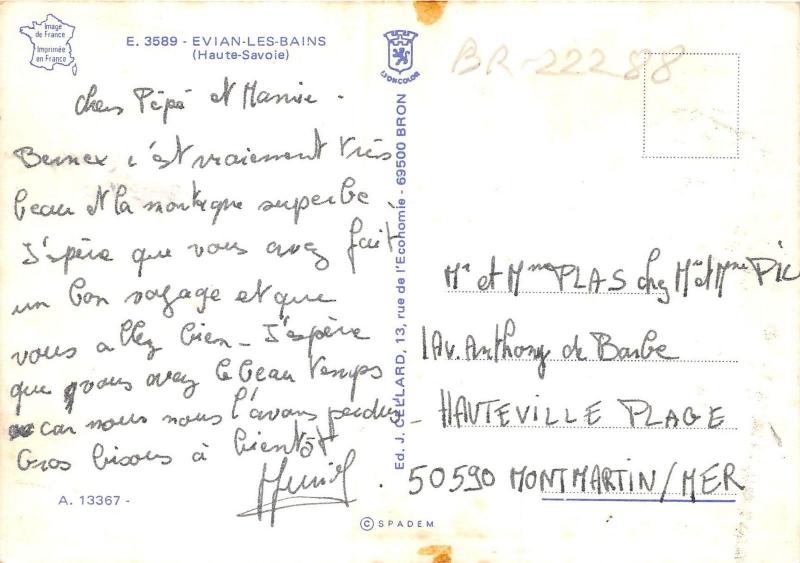 Image
de France
Imprimée
en France
E. 3589 - EVIAN-LES-BAINS
(Haute-Savoie)
LYONCOLOR
BR-22288
chers Pépé et Mamie.
Bernex c'est vraiement très
beau et la montagne superbe.
J'espère que vous avez fait
un bon voyage et que
vous allez bien - J'espère
que vous avez le beau temps
car nous nous l'avons perdus
Gros bisous à bientôt
Muriel
A. 13367 -
Ed. J. CELLARD, 13, rue de l'Economie - 69500 BRON
Mr et Mme PLAS chez Mr et Mme PIC
1 Av. Anthony de Barbe
HAUTEVILLE PLAGE
50590 MONTMARTIN/MER
© SPADEM